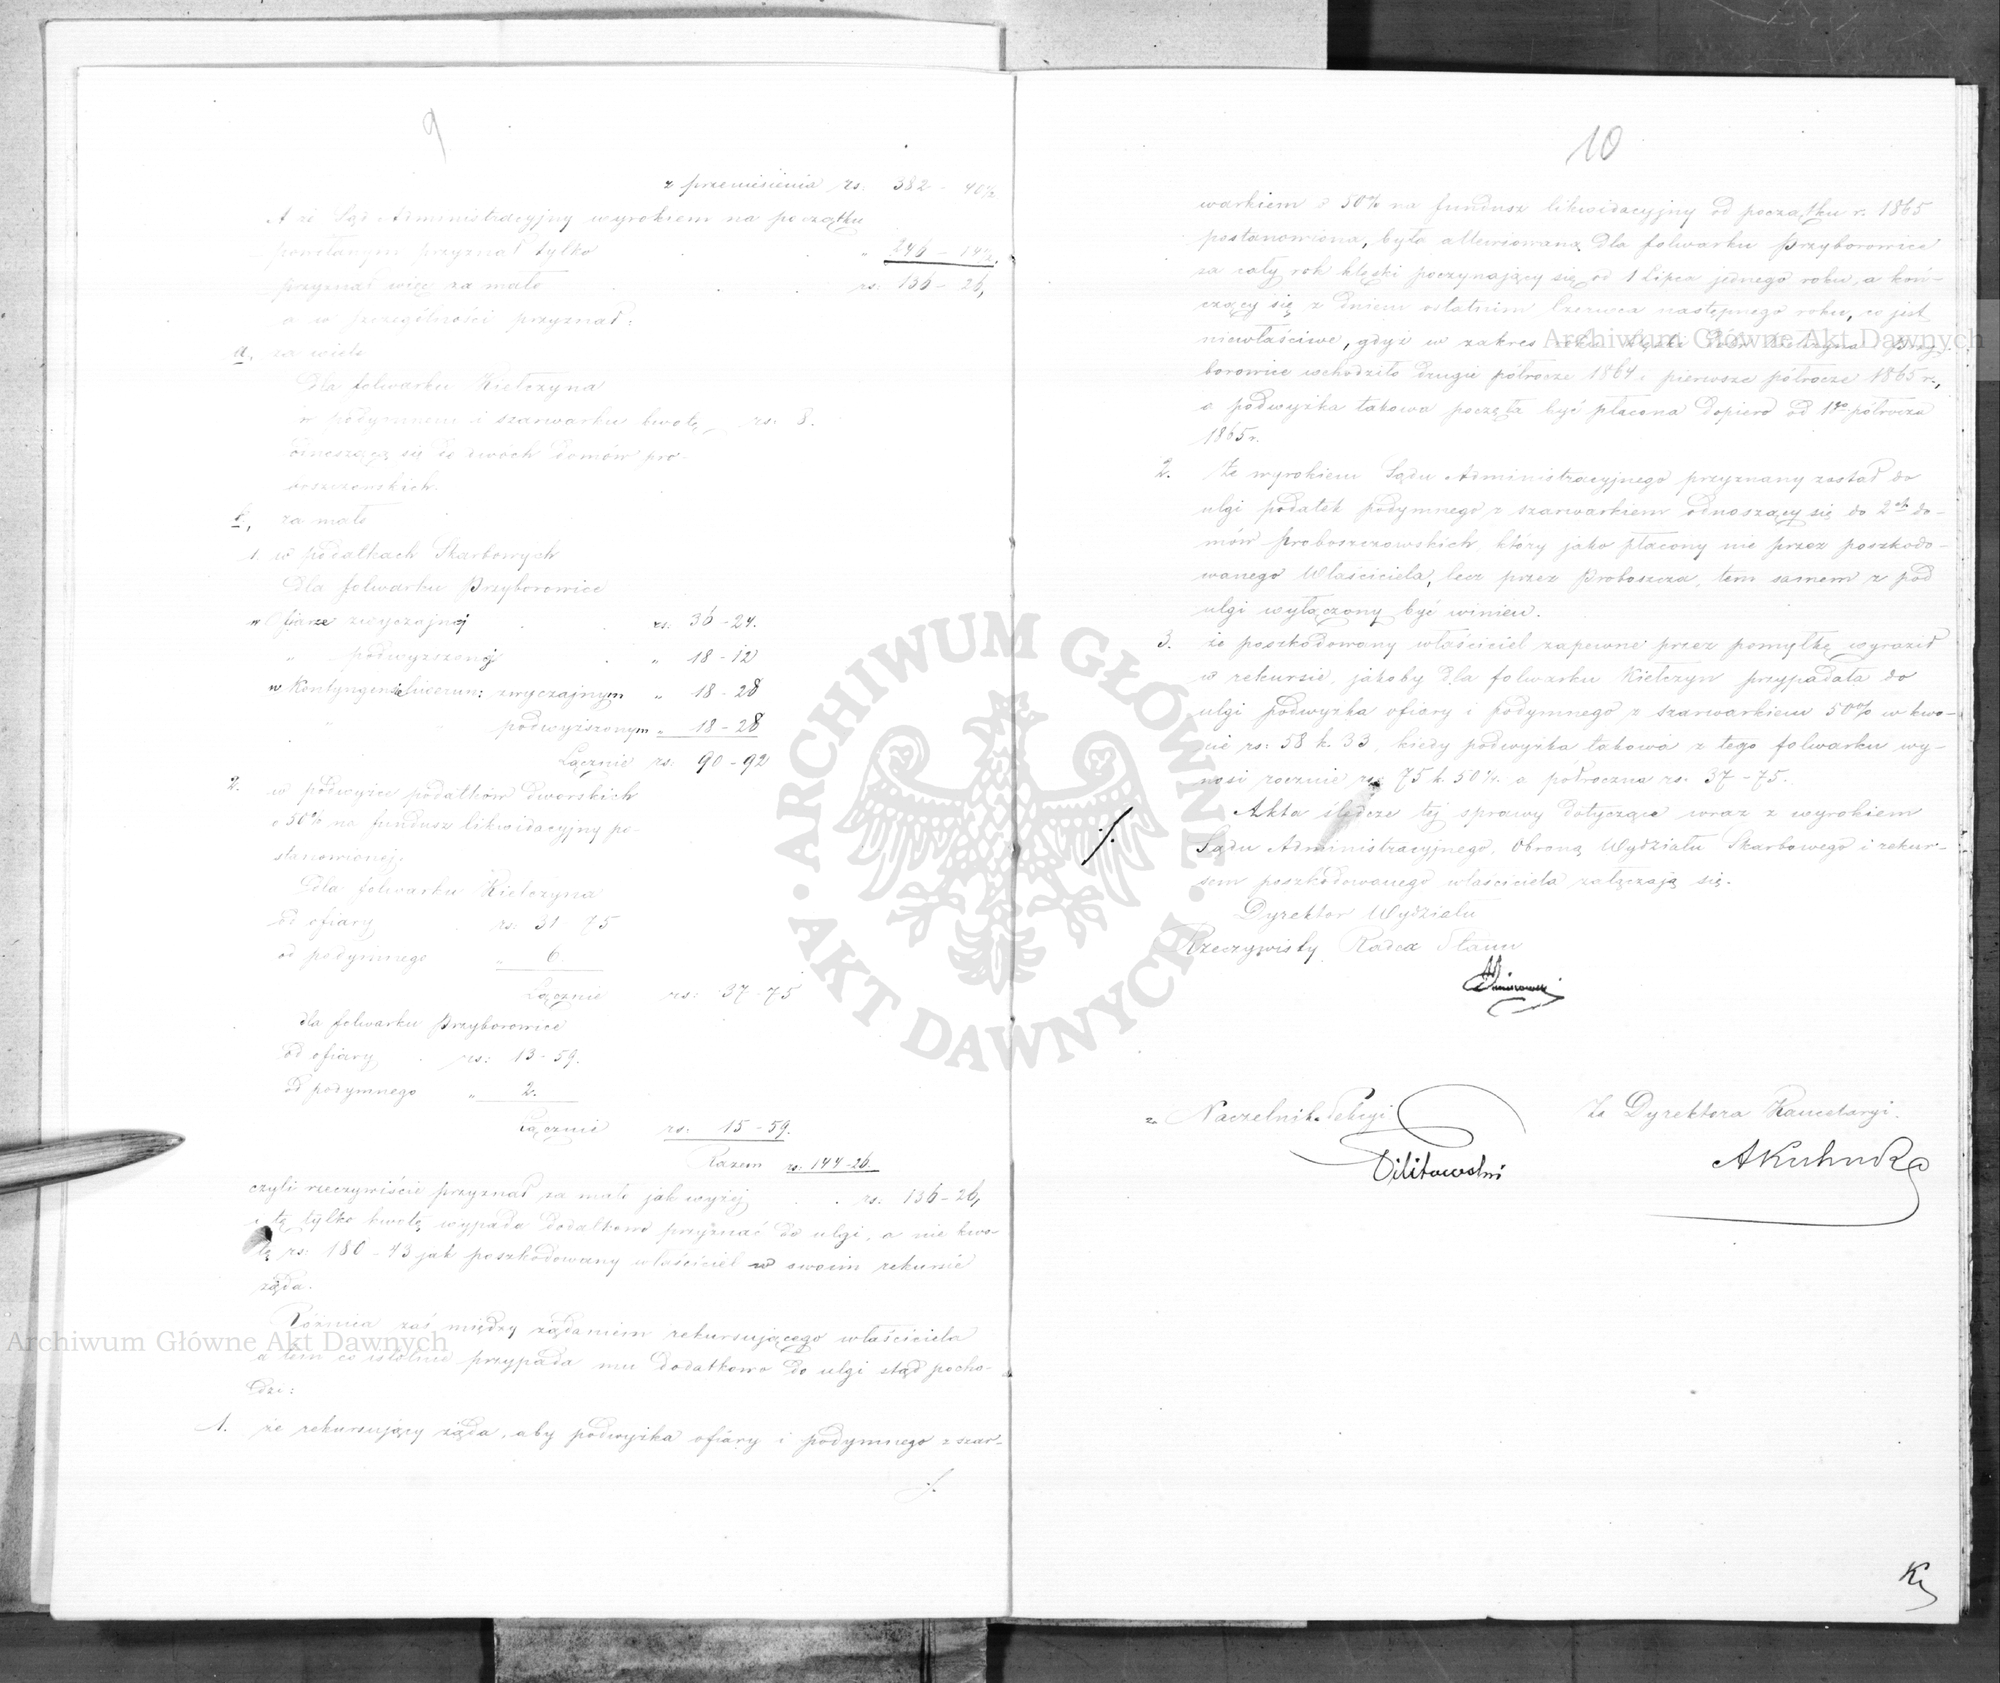 9
z przeniesienia rs: 382 - 40½
A że Sąd Administracyjny wyrokiem na początku
powołanym przyznał tylko " 246 - 14½.
przyznał więc za mało rs: 136 - 26,
a w szczególności przyznał:
a, za wiele
Dla folwarku Kiełczyna
w podymnem i szarwarku kwotę rs: 8.
odnoszącą się do dwóch domów pro-
boszczowskich.
b, za mało
1. w podatkach Skarbowych
Dla folwarku Przyborowice
w Ofiarze zwyczajnej rs: 36 - 24.
" podwyższonej " 18 - 12
w Kontyngensie liwerun: zwyczajnym " 18 - 28
" podwyższonym " 18 - 28
Łącznie rs: 90 - 92
2. w podwyżce podatków dworskich
o 50% na fundusz likwidacyjny po-
stanowionej,
Dla folwarku Kiełczyna
od ofiary rs: 31 - 75
od podymnego " 6.
Łącznie rs: 37 - 75
dla folwarku Przyborowice
od ofiary rs: 13 - 59.
od podymnego " 2.
Łącznie rs: 15 - 59.
Razem rs: 144 - 26.
czyli rzeczywiście przyznał za mało jak wyżej rs: 136 - 26,
i tę tylko kwotę wypada dodatkowo przyznać do ulgi, a nie kwo-
tę rs: 180 - 43 jak poszkodowany właściciel w swoim rekursie
żąda.
Różnica zaś między żądaniem rekursującego właściciela
a tem co istotnie przypada mu dodatkowo do ulgi stąd pocho-
dzi:
1. że rekursujący żąda, aby podwyżka ofiary i podymnego z szar-
10
warkiem o 50% na fundusz likwidacyjny od początku r. 1865
postanowiona, była allewiowaną dla folwarku Przyborowice
za cały rok klęski poczynający się od 1 Lipca jednego roku, a koń-
czący się z dniem ostatnim Czerwca następnego roku, co jest
niewłaściwe, gdyż w zakres roku klęski dóbr Kiełczyna i Przy-
borowice wchodziło drugie półrocze 1864 i pierwsze półrocze 1865 r.,
a podwyżka takowa poczęła być płacona dopiero od 1go półrocza
1865 r.
2. Że wyrokiem Sądu Administracyjnego przyznany został do
ulgi podatek podymnego z szarwarkiem odnoszący się do 2ch do-
mów Proboszczowskich, który jako płacony nie przez poszkodo-
wanego Właściciela, lecz przez Proboszcza, tem samem z pod
ulgi wyłączony być winien.
3. że poszkodowany właściciel zapewne przez pomyłkę wyraził
w rekursie, jakoby dla folwarku Kiełczyn przypadała do
ulgi podwyżka ofiary i podymnego z szarwarkiem 50% w kwo-
cie rs: 58 k. 33, kiedy podwyżka takowa z tego folwarku wy-
nosi rocznie rs: 75 k. 50½. a półroczna rs: 37 - 75.
Akta śledcze tej sprawy dotyczące wraz z wyrokiem
Sądu Administracyjnego, Obroną Wydziału Skarbowego i rekur-
sem poszkodowanego właściciela załączają się.
Dyrektor Wydziału
Rzeczywisty Radca Stanu
za Naczelnik Sekcyi
Za Dyrektora Kancelaryi.
Archiwum Główne Akt Dawnych
Archiwum Główne Akt Dawnych
ARCHIWUM GŁÓWNE AKT DAWNYCH